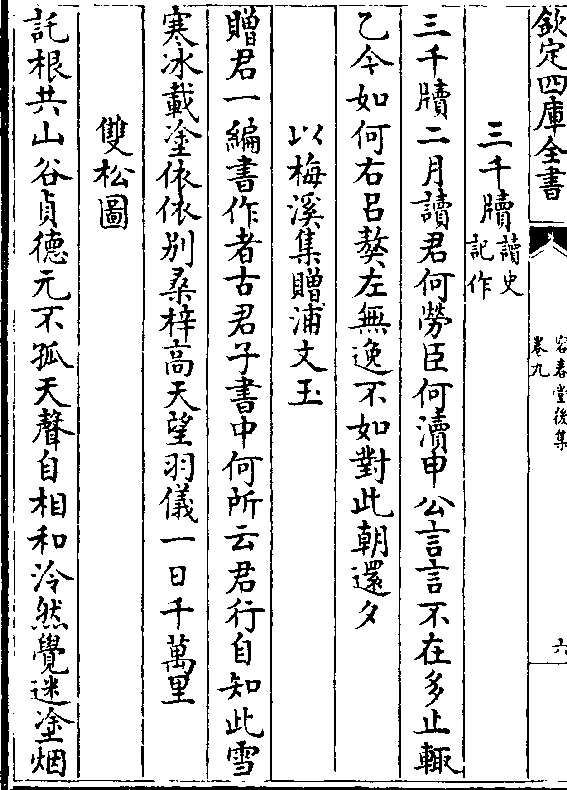 欽定四庫全書
容春堂後集
卷九
六
三千牘讀史
記作
三千牘二月讀君何勞臣何瀆申公言言不在多止輙
乙今如何右呂獒左無逸不如對此朝還夕
以梅溪集贈浦文玉
贈君一編書作者古君子書中何所云君行自知此雪
寒冰載塗依依别桑梓高天望羽儀一日千萬里
雙松圖
託根共山谷貞德元不孤天聲自相和泠然覺迷塗烟